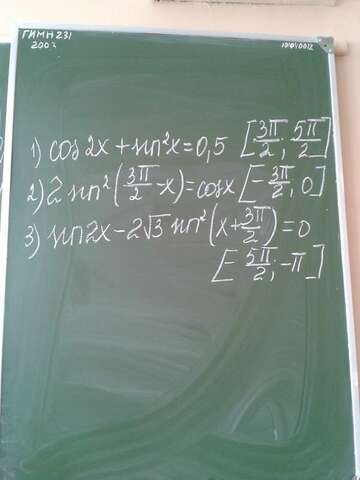 ГИМН 231
2007
1) cos2x + sin²x = 0,5 [3π/2; 5π/2]
2) 2 sin²(3π/2 - x) = cosx [-3π/2, 0]
3) sin2x - 2√3 sin²(x + 3π/2) = 0
[-5π/2; -π]